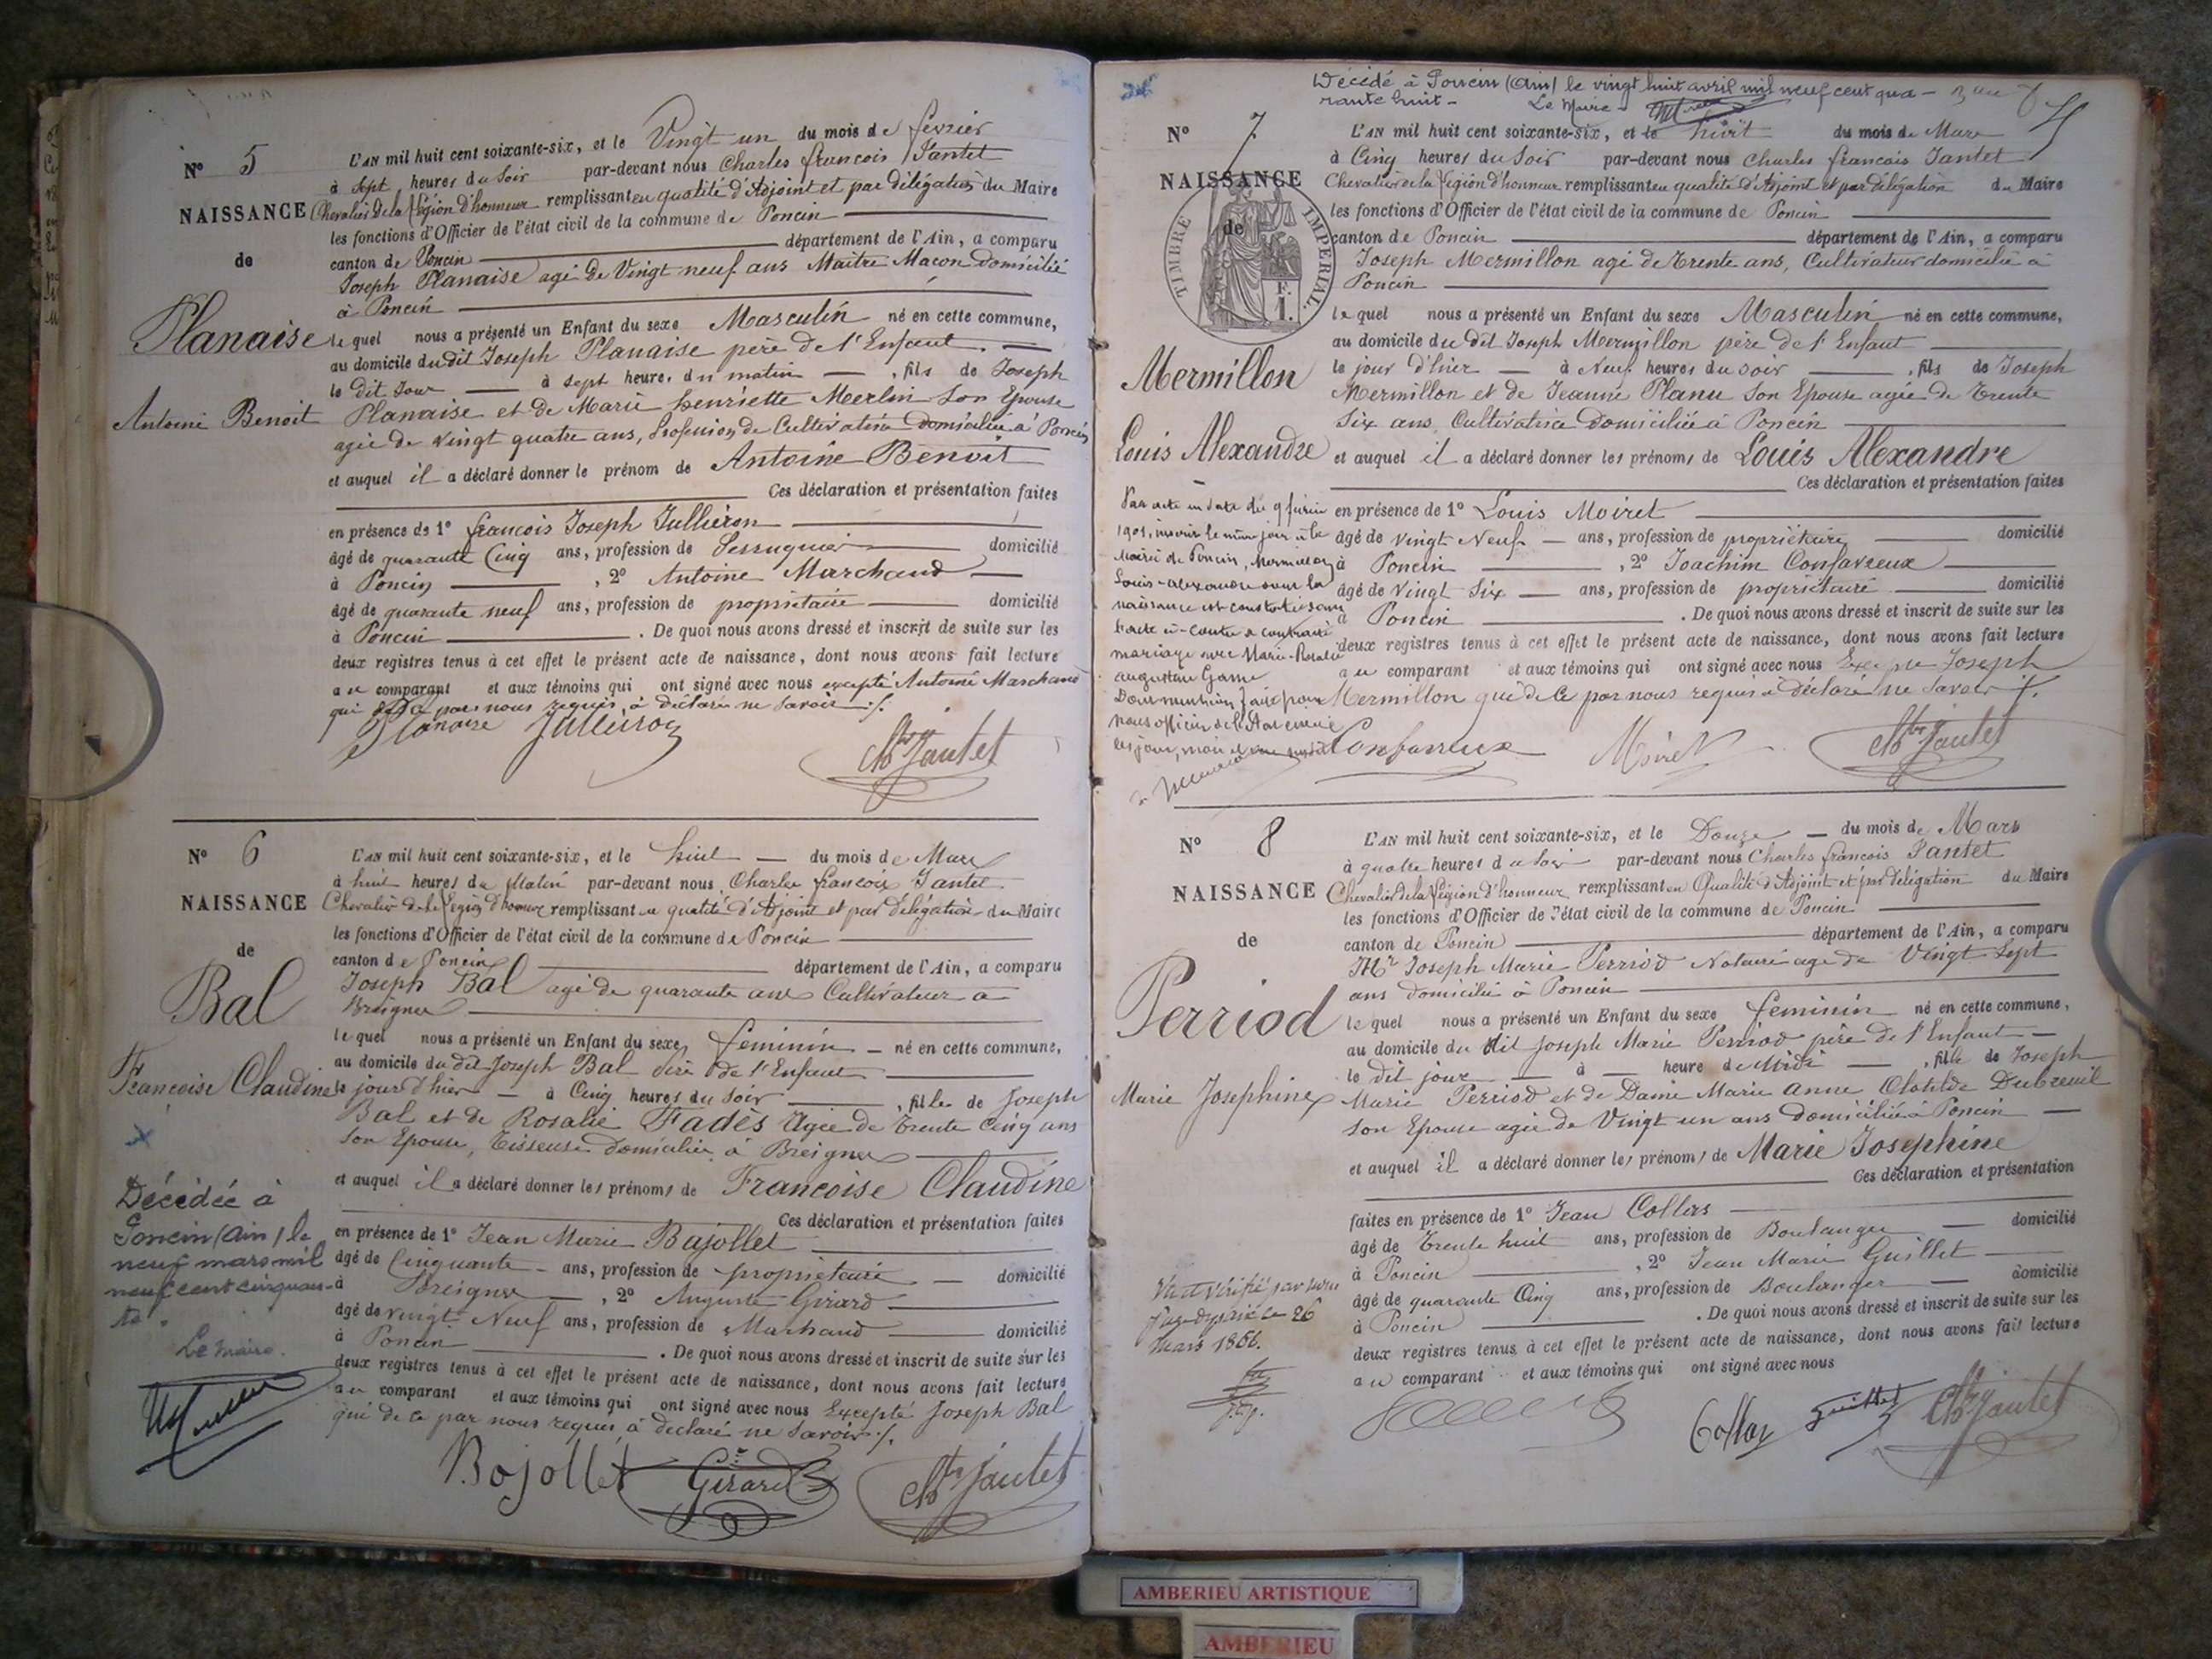 N° 5
NAISSANCE
de
Planaise
Antoine Benoit
L'AN mil huit cent soixante-six, et le Vingt un du mois de fevrier
à Sept heures du Soir par-devant nous Charles francois Jantet
Chevalier de la Légion d'honneur remplissant en qualité d'Adjoint et par délégation du Maire
les fonctions d'Officier de l'état civil de la commune de Poncin
canton de Poncin département de l'Ain, a comparu
Joseph Planaise agé de Vingt neuf ans Maitre Macon domicilié
à Poncin
lequel nous a présenté un Enfant du sexe Masculin né en cette commune,
au domicile du dit Joseph Planaise père de l'Enfant
le dit Jour à Sept heure, du matin, fils de Joseph
Planaise et de Marie henriette Merlin Son Epouse
agée de vingt quatre ans, profession de Cultivatrice domiciliée à Poncin
et auquel il a déclaré donner le prénom de Antoine Benoit
Ces déclaration et présentation faites
en présence de 1° francois Joseph Jullieron
âgé de quarante Cinq ans, profession de Perruquier domicilié
à Poncin, 2° Antoine Marchand
âgé de quarante neuf ans, profession de propriétaire domicilié
à Poncin. De quoi nous avons dressé et inscrit de suite sur les
deux registres tenus à cet effet le présent acte de naissance, dont nous avons fait lecture
au comparant et aux témoins qui ont signé avec nous excepté Antoine Marchand
qui de ce par nous requis, à déclaré ne Savoir ./.
Planaise Jullieron Ch Jantet
N° 6
NAISSANCE
de
Bal
Francoise Claudine
Décédée à
Poncin (Ain) le
neuf mars mil
neuf cent cinquan-
te.
Le Maire.
L'AN mil huit cent soixante-six, et le huit du mois de Mars
à huit heures du Matin par-devant nous Charles francois Jantet
Chevalier de la Légion d'honneur remplissant en qualité d'Adjoint et par délégation du Maire
les fonctions d'Officier de l'état civil de la commune de Poncin
canton de Poncin département de l'Ain, a comparu
Joseph Bal agé de quarante ans Cultivateur à
Breignes
lequel nous a présenté un Enfant du sexe féminin né en cette commune,
au domicile du dit Joseph Bal père de l'Enfant
le jour d'hier à Cinq heures du Soir, fille de Joseph
Bal et de Rosalie Fadès Agée de trente Cinq ans
Son Epouse, Tisseuse domiciliée à Breignes
et auquel il a déclaré donner les prénoms de Francoise Claudine
Ces déclaration et présentation faites
en présence de 1° Jean Marie Bajollet
âgé de Cinquante ans, profession de propriétaire domicilié
à Breignes, 2° Auguste Girard
âgé de vingt Neuf ans, profession de Marchand domicilié
à Poncin. De quoi nous avons dressé et inscrit de suite sur les
deux registres tenus à cet effet le présent acte de naissance, dont nous avons fait lecture
au comparant et aux témoins qui ont signé avec nous Excepté Joseph Bal
qui de ce par nous requis, à déclaré ne Savoir ./.
Bajollet Girard Ch Jantet
Décédé à Poncin (Ain) le vingt huit avril mil neuf cent qua-
rante huit - Le Maire
N° 7
NAISSANCE
de
TIMBRE IMPERIAL
F.
1.
Mermillon
Louis Alexandre
Par acte en date du 9 février
1901, inscrit le même jour à la
mairie de Poncin, Mermillon
Louis-Alexandre dont la
naissance est constatée dans
l'acte ci-contre a contracté
mariage avec Marie-Rosalie
Augustine
Dont mention faite par
nous officier de l'Etat civil
les jour, mois et an susdits
L'AN mil huit cent soixante-six, et le huit du mois de Mars
à Cinq heures du Soir par-devant nous Charles francois Jantet
Chevalier de la Légion d'honneur remplissant en qualité d'Adjoint et par délégation du Maire
les fonctions d'Officier de l'état civil de la commune de Poncin
canton de Poncin département de l'Ain, a comparu
Joseph Mermillon agé de trente ans, Cultivateur domicilié à
Poncin
lequel nous a présenté un Enfant du sexe Masculin né en cette commune,
au domicile du dit Joseph Mermillon père de l'Enfant
le jour d'hier à Neuf heures du soir, fils de Joseph
Mermillon et de Jeanne Planu Son Epouse agée de trente
Six ans, Cultivatrice domiciliée à Poncin
et auquel il a déclaré donner les prénoms de Louis Alexandre
Ces déclaration et présentation faites
en présence de 1° Louis Moiret
âgé de vingt Neuf ans, profession de propriétaire domicilié
à Poncin, 2° Joachim Confavreux
âgé de Vingt Six ans, profession de propriétaire domicilié
à Poncin. De quoi nous avons dressé et inscrit de suite sur les
deux registres tenus à cet effet le présent acte de naissance, dont nous avons fait lecture
au comparant et aux témoins qui ont signé avec nous Excepté Joseph
Mermillon qui de ce par nous requis à déclaré ne Savoir ./.
Confavreux Moiret Ch Jantet
N° 8
NAISSANCE
de
Perriod
Marie Josephine
mars 1866.
L'AN mil huit cent soixante-six, et le Douze du mois de Mars
à quatre heures du Soir par-devant nous Charles francois Jantet
Chevalier de la Légion d'honneur remplissant en Qualité d'Adjoint et par délégation du Maire
les fonctions d'Officier de l'état civil de la commune de Poncin
canton de Poncin département de l'Ain, a comparu
Mr Joseph Marie Perriod Notaire agé de Vingt Sept
ans domicilié à Poncin
lequel nous a présenté un Enfant du sexe féminin né en cette commune,
au domicile du dit Joseph Marie Perriod père de l'Enfant
le dit jour à heure de Midi, fille de Joseph
Marie Perriod et de Dame Marie Anne Clotilde Dubreuil
Son Epouse agée de Vingt un ans domiciliée à Poncin
et auquel il a déclaré donner les prénoms de Marie Josephine
Ces déclaration et présentation
faites en présence de 1° Jean Collas
âgé de trente huit ans, profession de Boulanger domicilié
à Poncin, 2° Jean Marie Guillet
âgé de quarante Cinq ans, profession de Boulanger domicilié
à Poncin. De quoi nous avons dressé et inscrit de suite sur les
deux registres tenus à cet effet le présent acte de naissance, dont nous avons fait lecture
au comparant et aux témoins qui ont signé avec nous
Collas Guillet Ch Jantet
AMBERIEU ARTISTIQUE
AMBERIEU